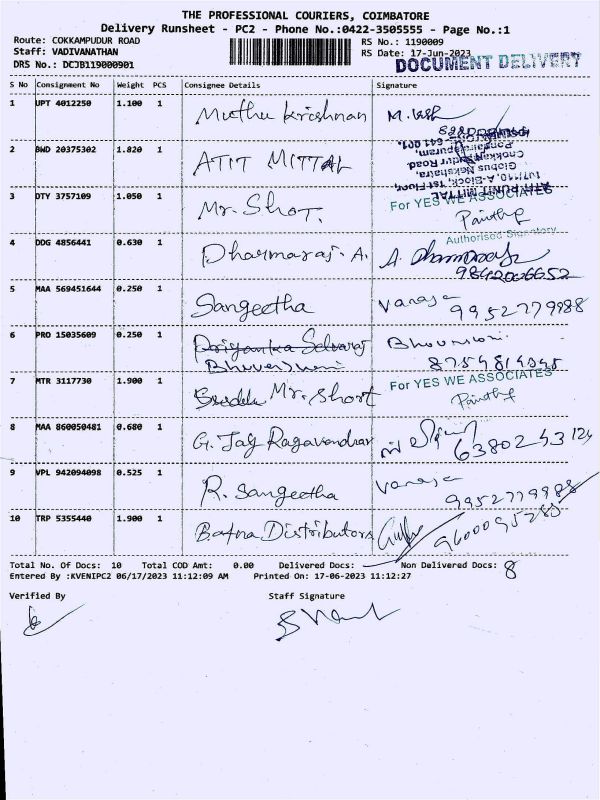 THE PROFESSIONAL COURIERS, COIMBATORE
Delivery Runsheet - PC2 - Phone No.:0422-3505555 - Page No.:1
Route: COKKAMPUDUR ROAD
RS No.: 1190009
Staff: VADIVANATHAN
RS Date: 17-Jun-2023
DRS No.: DCJB119000901
DOCUMENT DELIVERY
S No Consignment No Weight PCS Consignee Details Signature
1 UPT 4012250 1.100 1 Muthu krishnan
2 BWD 20375302 1.820 1 ATIT MITTAL
3 DTY 3757109 1.050 1 Mr. Shot.
For YES WE ASSOCIATES
Authorised Signatory
4 DDG 4856441 0.630 1 Dharmaraj. A.
9842006652
5 MAA 569451644 0.250 1 Sangeetha Vanaja
9952779988
6 PRO 15035609 0.250 1 Priyanka Selvaraj
Bhuveshwari
7 MTR 3117730 1.900 1 Mr. Short For YES WE ASSOCIATES
8 MAA 860050481 0.680 1 G. Jay Ragavendran
6380243124
9 VPL 942094098 0.525 1 R. Sangeetha Vanaja
9952779988
10 TRP 5355440 1.900 1 Bafna Distributors
9600095280
Total No. Of Docs: 10 Total COD Amt: 0.00 Delivered Docs: Non Delivered Docs: 8
Entered By :KVENIPC2 06/17/2023 11:12:09 AM Printed On: 17-06-2023 11:12:27
Verified By Staff Signature